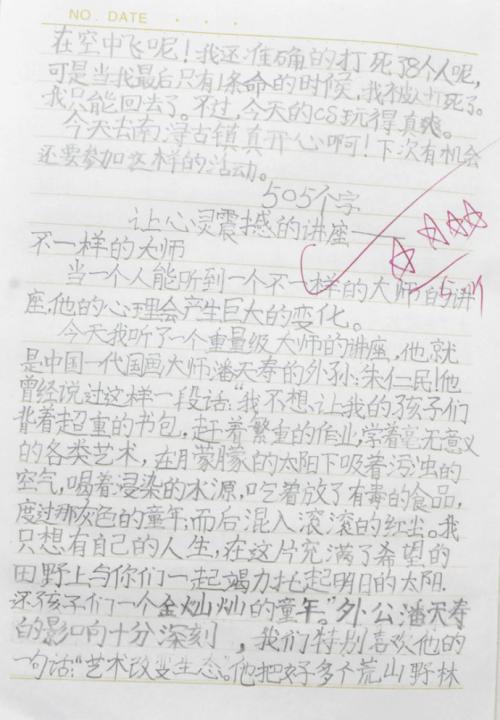 NO.
DATE
在空中飞呢！我还准确的打死了8个人呢，
可是当我最后只有1条命的时候，我被人打死了。
我只能回去了。不过，今天的CS玩得真爽。
今天去南浔古镇真开心啊！下次有机会
还要参加这样的活动。
505个字
让心灵震撼的讲座——
不一样的大师
当一个人能听到一个不一样的大师的讲
座，他的心理会产生巨大的变化。
今天我听了一个重量级大师的讲座，他，就
是中国一代国画大师潘天寿的外孙：朱仁民！他
曾经说过这样一段话：“我不想，让我的孩子们
背着超重的书包，赶着繁重的作业，学着毫无意义
的各类艺术，在月蒙朦的太阳下吸着污浊的
空气，喝着浸染的水源，吃着放了有毒的食品，
度过那灰色的童年，而后混入滚滚的红尘。我
只想有自己的人生，在这片充满了希望的
田野上与你们一起竭力托起明日的太阳，
还孩子们一个金灿灿的童年。”外公潘天寿
的影响十分深刻，我们特别喜欢他的
一句话：“艺术改变生态。他把好多个荒山野林